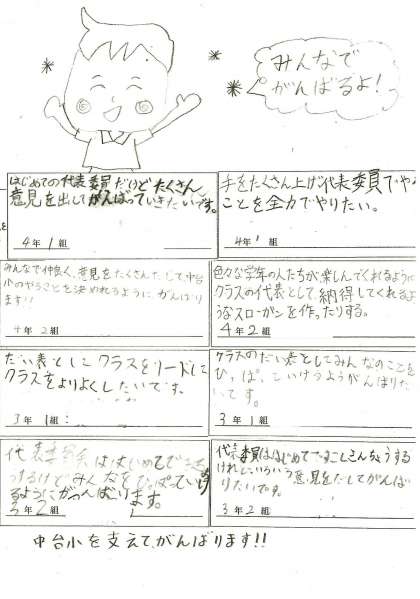 みんなで
がんばるよ!
はじめての代表委員だけどたくさん
意見を出してがんばっていきたいです。
4年1組
手をたくさん上げ代表委員でやる
ことを全力でやりたい。
4年1組
みんなで仲良く、意見をたくさんだして中台
小のやることを決めれるように がんばり
ます!!
4年2組
色々な学年の人たちが、楽しんでくれるように
クラスの代表として、納得してくれるよ
うなスローガンを作ったりする。
4年2組
だい表としてクラスをリードして
クラスをよりよくしたいです。
3年1組
クラスのだい表としてみんなのことを
ひっぱっていけるようがんばりた
いです。
3年1組
代表委員会ははじめてで
けどみんなをひっぱっていけ
るようにがんばります。
3年2組
代表委員ははじめてですこしきんちょうする
けれどいろいろな意見をだしてがんば
りたいです。
3年2組
中台小を支えて、がんばります!!